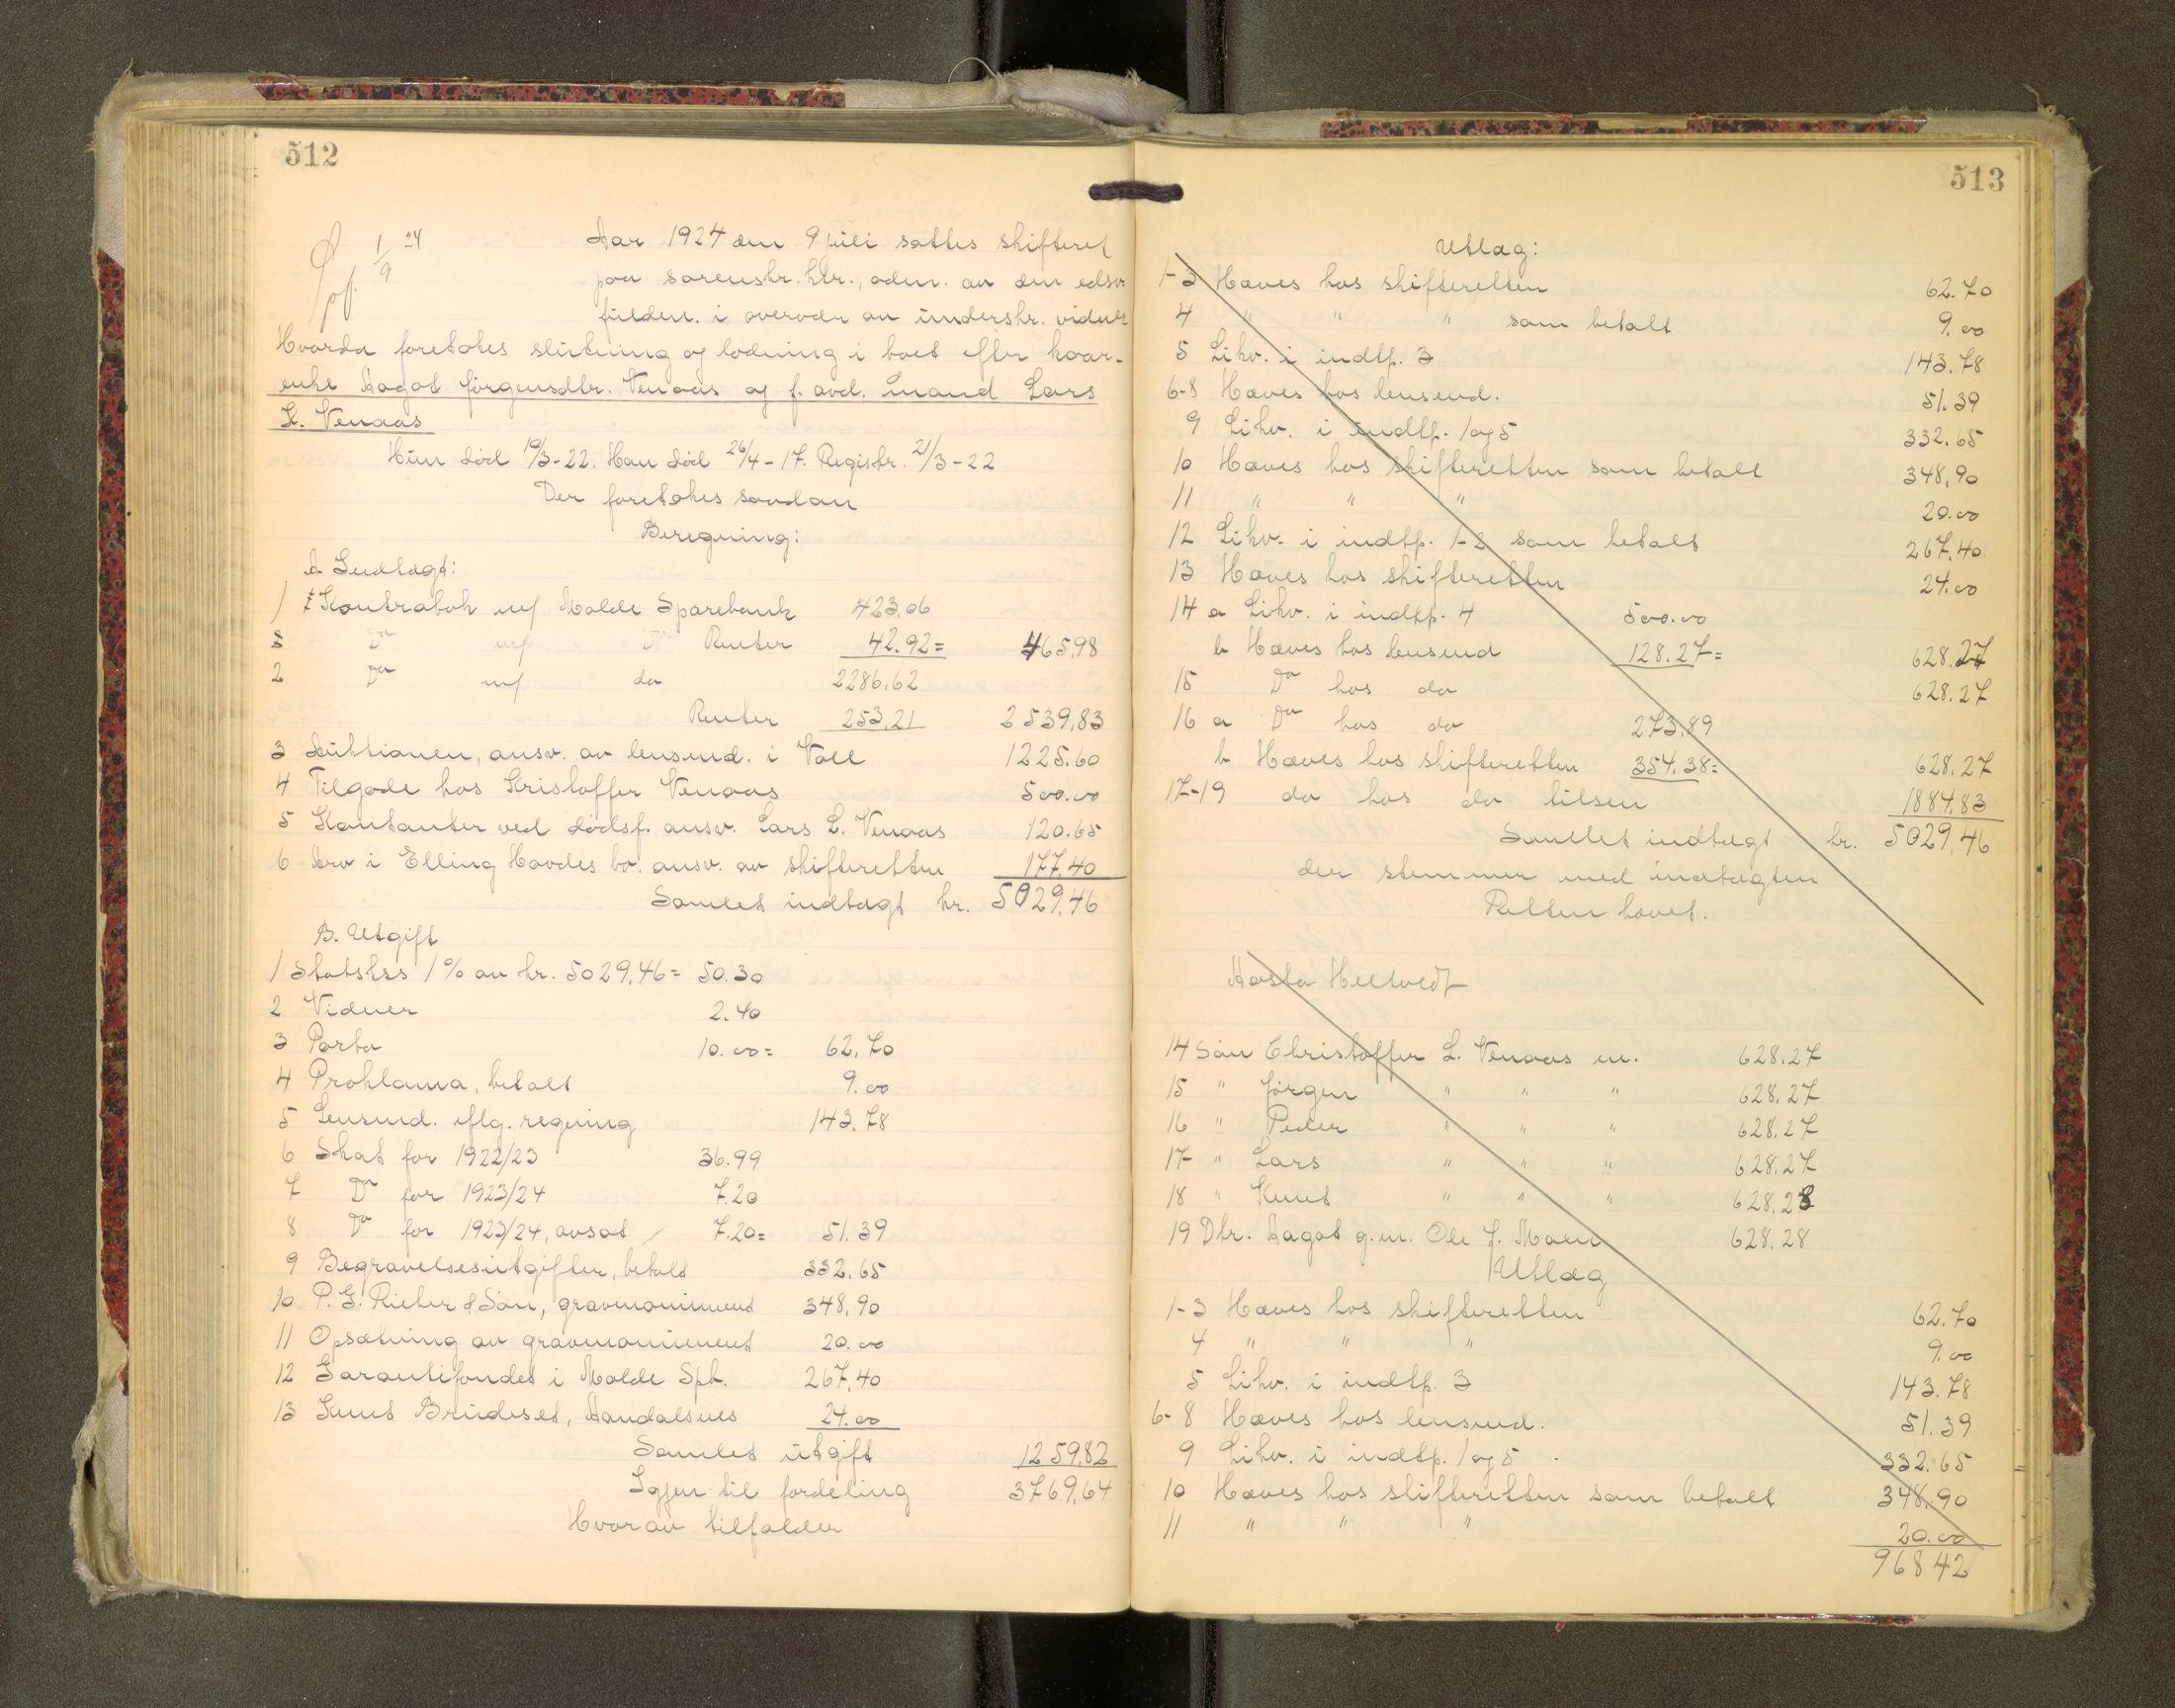 512
1/9 24
Aar 1924 den 9 juli sattes skifteret
paa sorenskr. ktr., adm. av den edsv.
fuldm. i overvær av underskr. vidner
Hvorda foretokes slutning og lodning i boet efter kaar-
enke Magot Jørgensdtr. Venaas og f. avd. mand Lars
L. Venaas
Hun død 19/3-22. Han død 26/4-17. Registr. 21/3-22
Der foretokes saadan
Beregning:
A Indtægt:
1 Kontrabok m/ Molde Sparebank 423,06
Do m/ Do Renter 42.92 = 465,98
2 Do m/ do 2286,62
Renter 253,21 2539,83
3 Auktionen, ansv. av lensmd. i Voll 1225.60
4 Tilgode hos Kristoffer Venaas 500.00
5 Kontanter ved dødsf. ansv. Lars L. Venaas 120.65
6 Arv i Elling Hovdes bo. ansv. av skifteretten 177,40
Samlet indtægt kr. 5029,46
B. Utgift
1 Statskss 1% av kr. 5029,46 = 50.30
2 Vidner 2.40
3 Porto 10.00 = 62,70
4 Proklama, betalt 9.00
5 Lensmd. iflg. regning 143.78
6 Skat for 1922/23 36.99
7 Do for 1923/24 7.20
8 Do for 1923/24, avsat 7.20 = 51.39
9 Begravelsesutgifter, betalt 332.65
10 P. G. Rieber & Søn, gravmonument 348,90
11 Opsætning av gravmonument 20.00
12 Garantifondet i Molde Spb. 267,40
13 Knut Brudeset, Aandalsnes 24.00
Samlet utgift 1259,82
Igjen til fordeling 3769,64
Hvorav tilfalder
513
Utlæg:
1-3 Hæves hos skifteretten 62.70
4 " " " som betalt 9.00
5 Likv. i indtp. 3 143.78
6-8 Hæves hos lensmd. 51.39
9 Likv. i indtp. 1 og 5 332.65
10 Hæves hos skifteretten som betalt 348,90
11 " " " 20.00
12 Likv. i indtp. 1-2 som betalt 267,40
13 Hæves hos skifteretten 24.00
14 a Likv. i indtp. 4 500.00
b Hæves hos lensmd 128.27 = 628.27
15 Do hos do 628.27
16 a Do hos do 273.89
b Hæves hos skifteretten 354,38 = 628.27
17-19 do hos do tilsen 1884,83
Samlet indtægt kr. 5029,46
der stemmer med indtægten
Retten hævet.
Aasta Heltvedt
14 Søn Christoffer L. Venaas m. 628.27
15 " Jørgen " " " 628.27
16 " Peder " " " 628.27
17 " Lars " " " 628.27
18 " Knut " " " 628.28
19 Dtr. Magot g.m. Ole J. Moen 628.28
Utlæg
1-3 Hæves hos skifteretten 62.70
4 " " " 9.00
5 Likv. i indtp. 3 143.78
6-8 Hæves hos lensmd. 51.39
9 Likv. i indtp. 1 og 5 332.65
10 Hæves hos skifteretten som betalt 348,90
11 " " " 20.00
96842